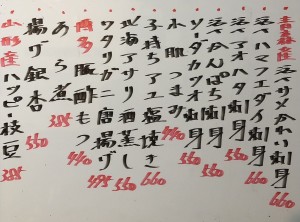 青森産 活サメかれい刺身 660
活ハマフエダイ刺身
活アオハタ刺身 550
活かんぱち刺身 550
ソーダガツオ刺身 550
小肌つまみ 440
子持ちアユ塩焼き 660
北海アサリ酒蒸し 550
ワタリガニ唐揚げ 495
博多豚酢もつ 440
あら煮 385
揚げ銀杏 550
山形産ハッピー枝豆 385